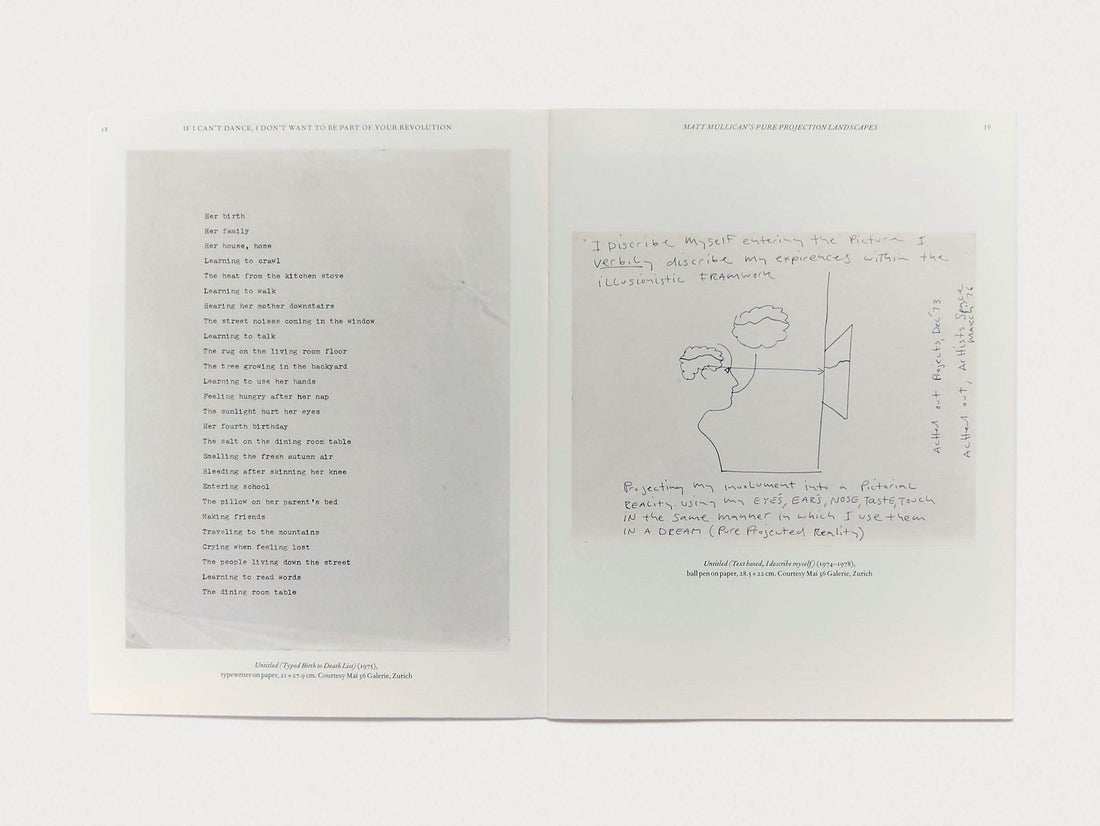 18
IF I CAN'T DANCE, I DON'T WANT TO BE PART OF YOUR REVOLUTION
Her birth
Her family
Her house, home
Learning to crawl
The heat from the kitchen stove
Learning to walk
Hearing her mother downstairs
The street noises coming in the window
Learning to talk
The rug on the living room floor
The tree growing in the backyard
Learning to use her hands
Feeling hungry after her nap
The sunlight hurt her eyes
Her fourth birthday
The salt on the dining room table
Smelling the fresh autumn air
Bleeding after skinning her knee
Entering school
The pillow on her parent's bed
Making friends
Traveling to the mountains
Crying when feeling lost
The people living down the street
Learning to read words
The dining room table
Untitled (Typed Birth to Death List) (1975),
typewriter on paper, 21 × 27.9 cm. Courtesy Mai 36 Galerie, Zurich
MATT MULLICAN'S PURE PROJECTION LANDSCAPES
19
I Discribe Myself entering the Picture I
verbily discribe my expirences within the
illusionistic FRAMwork
Actted out Projects, Dec '73
Actted out, Artists Space
March '76
Projecting my involvment into a Pictorial
REALITY. using my EYE'S, EAR'S, NOSE, Taste, Touch
IN the Same manner in which I use them
IN A DREAM (Pure Projected Reality)
Untitled (Text based, I describe myself) (1974–1978),
ball pen on paper, 28.5 × 22 cm. Courtesy Mai 36 Galerie, Zurich